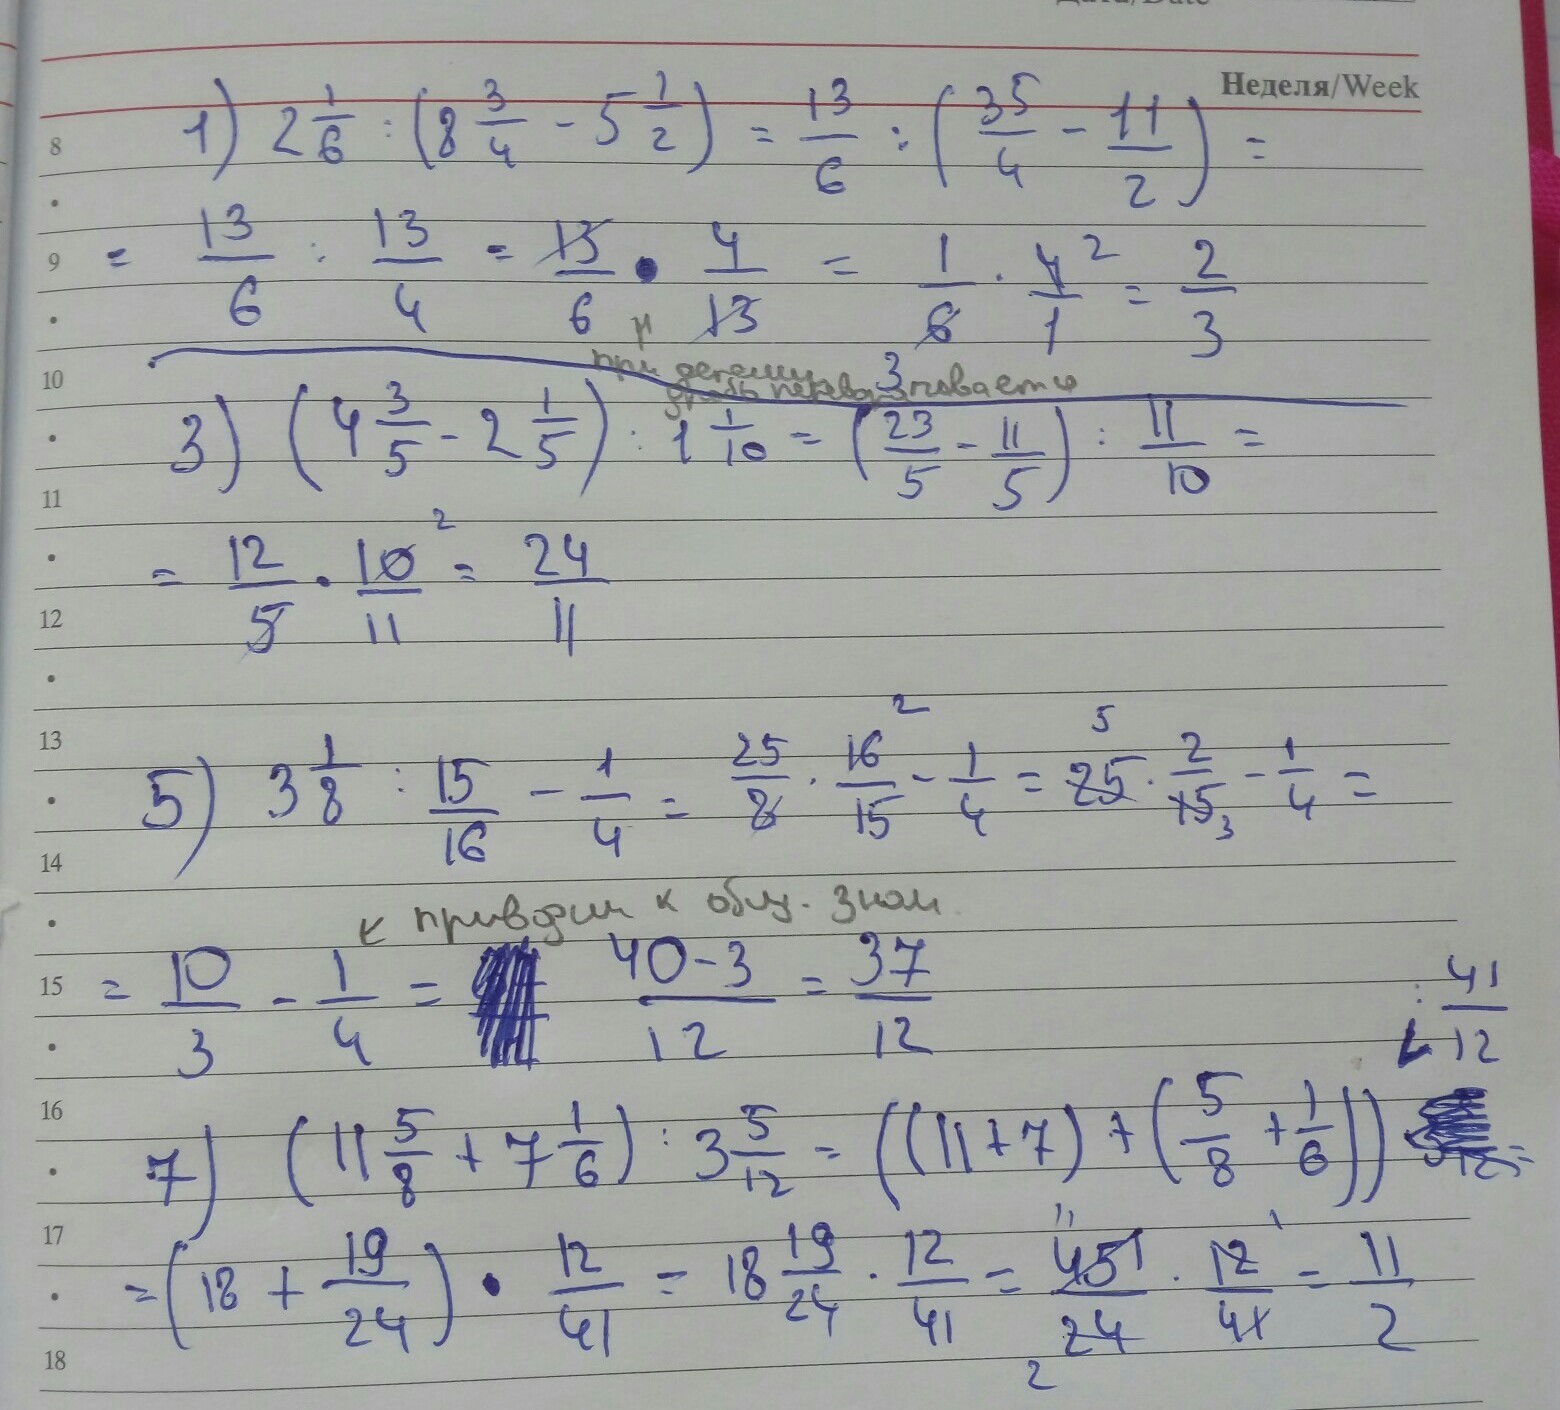 Дата/Date
Неделя/Week
8 1) 2 1/6 : (8 3/4 - 5 1/2) = 13/6 : (35/4 - 11/2) =
9 = 13/6 : 13/4 = 13/6 · 4/13 = 1/6 · 4/1 2 = 2/3
и
при делении 3
дробь переворачивается
10 3) (4 3/5 - 2 1/5) : 1 1/10 = (23/5 - 11/5) : 11/10 =
11
12 = 12/5 · 10/11 2 = 24/11
13 5) 3 1/8 : 15/16 - 1/4 = 25/8 · 16/15 2 - 1/4 = 25 5 · 2/15 3 - 1/4 =
14
к приводим к общ. знам.
15 = 10/3 - 1/4 = 40-3/12 = 37/12
: 41/12
16 7) (11 5/8 + 7 1/6) : 3 5/12 = ((11+7) + (5/8 + 1/6)) =
17 = (18 + 19/24) · 12/41 = 18 19/24 · 12/41 = 451/24 11 2 · 12/41 1 = 11/2
18